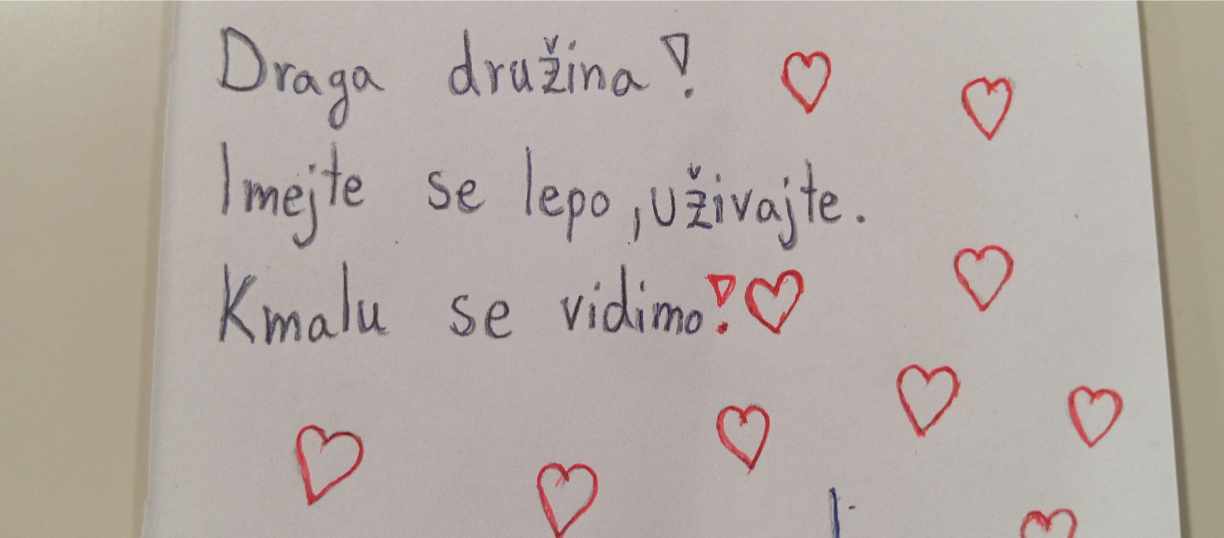 Draga družina!
Imejte se lepo, uživajte.
Kmalu se vidimo!